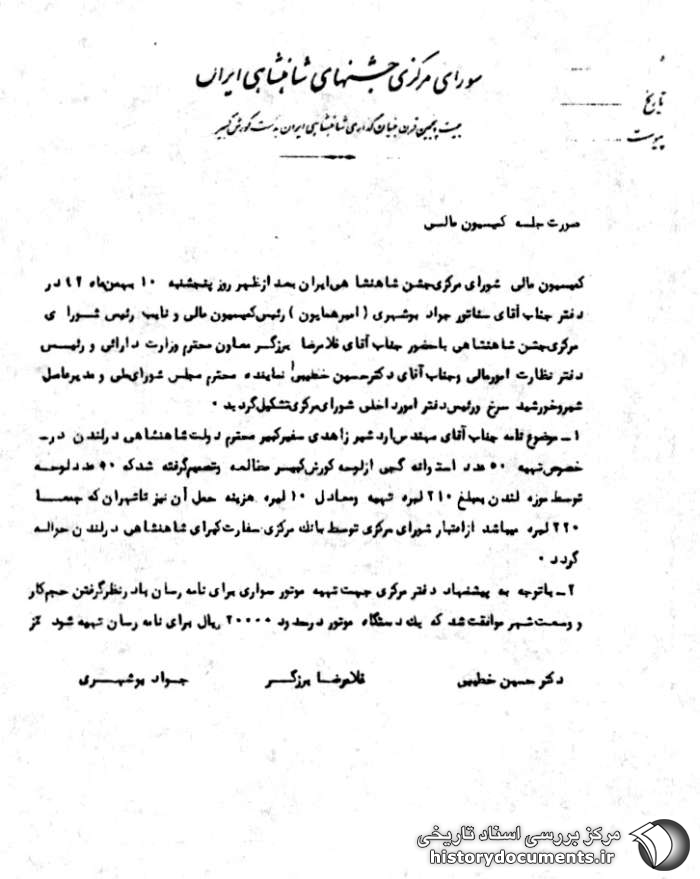 شورای مرکزی جشنهای شاهنشاهی ایران
بیست و پنجمین قرن بنیان گذاری شاهنشاهی ایران بدست کورش کبیر
تاریخ
پیوست
صورت جلسه کمیسیون مالی
کمیسیون مالی شورای مرکزی جشن شاهنشاهی ایران بعد از ظهر روز پنجشنبه ۱۰ بهمن ماه ۴۲ در
دفتر جناب آقای سناتور جواد بوشهری (امیرهمایون) رئیس کمیسیون مالی و نایب رئیس شورای
مرکزی جشن شاهنشاهی با حضور جناب آقای غلامرضا برزگر معاون محترم وزارت دارائی و رئیس
دفتر نظارت امور مالی و جناب آقای دکتر حسین خطیبی نماینده محترم مجلس شورای ملی و مدیرعامل
شیر و خورشید سرخ و رئیس دفتر امور داخلی شورای مرکزی تشکیل گردید ۰
۱ـ موضوع نامه جناب آقای مهندس اردشیر زاهدی سفیر کبیر محترم دولت شاهنشاهی در لندن در
خصوص تهیه ۵۰ عدد استوانه گچی از لوحه کورش کبیر مطالعه و تصمیم گرفته شد که ۵۰ عدد لوحه
توسط موزه لندن بمبلغ ۲۱۰ لیره تهیه و معادل ۱۰ لیره هزینه حمل آن نیز تا تهران که جمعا
۲۲۰ لیره میباشد از اعتبار شورای مرکزی توسط بانک مرکزی سفارت کبرای شاهنشاهی در لندن حواله
گردد ۰
۲ـ با توجه به پیشنهاد دفتر مرکزی جهت تهیه موتور سواری برای نامه رسان با در نظر گرفتن حجم کار
و وسعت شهر موافقت شد که یک دستگاه موتور در حدود ۲۰۰۰۰ ریال برای نامه رسان تهیه شود
دکتر حسین خطیبی غلامرضا برزگر جواد بوشهری
مرکز بررسی اسناد تاریخی
historydocuments.ir